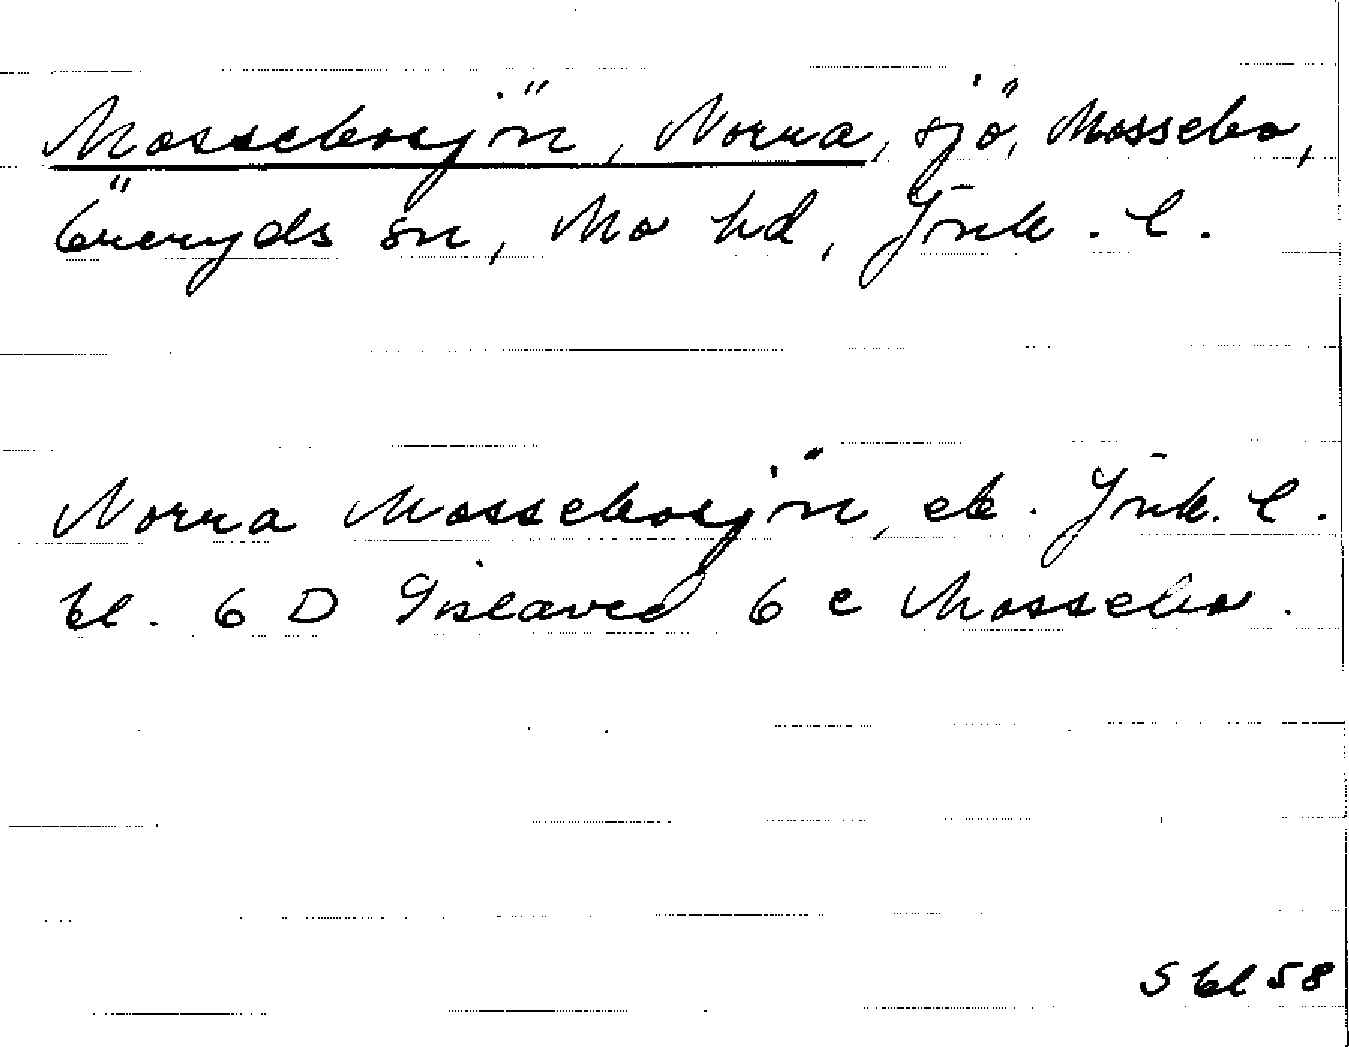 Mossebosjön, Norra, sjö, Mossebo,
Öreryds sn, Mo hd, Jönk. l.
Norra Mossebosjön, ek. Jönk. l.
bl. 6 D Gislaved 6 c Mossebo.
S bl 58